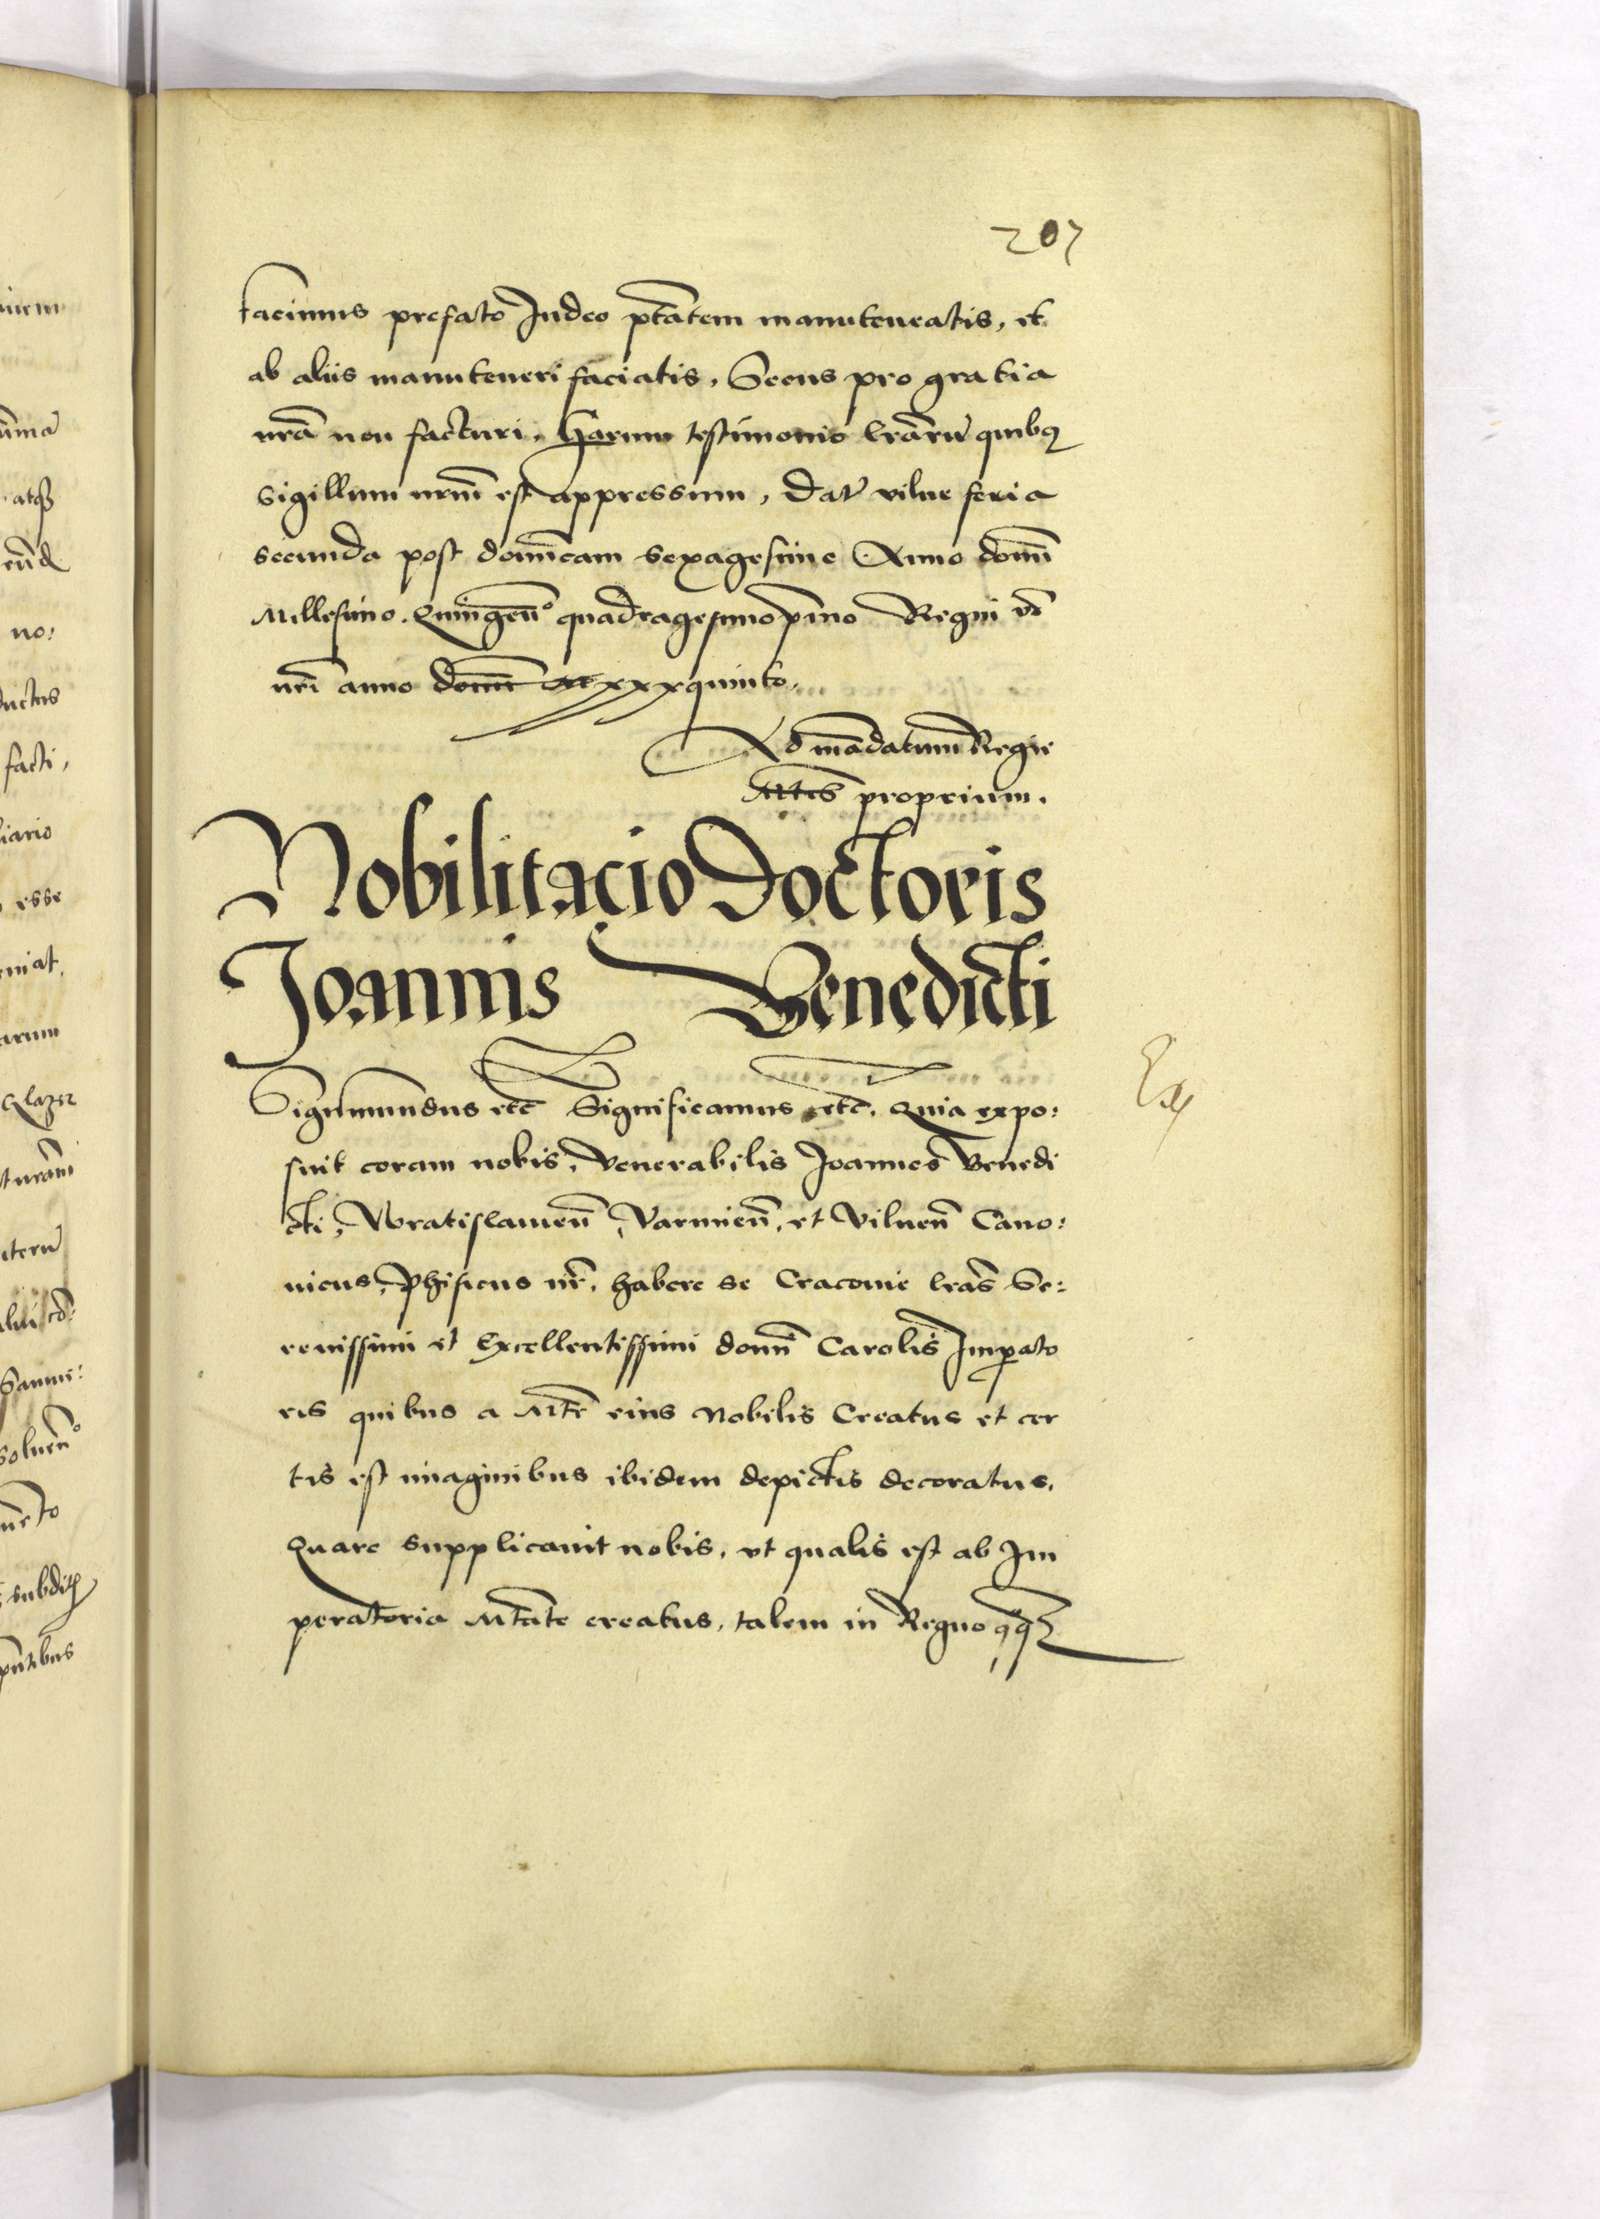 207
facimus prefato Judeo ptatem manuteneatis, et
ab aliis manuteneri faciatis, Secus pro gratia
nrã non facturi. Harum testimonio lrarũ quibq
sigillum nrm̃ est appressum, Dat̃ vilne feria
secunda post domĩcam sexagesime Anno domĩ
Millesimo. Quingen̄º quadragesimo pmo Regni vō
nrĩ anno xxxquinto.
Ad mãdatum Regie
Mtis proprium.
Nobilitacio Doctoris
Joannis Benedicti
Sigismundus etc̄ Significamus etc̄. Quia expo:
suit coram nobis, Venerabilis Joannes Benedi
cti, Wratislauien̄, Varmien̄, et Vilnen̄ Cano:
nicus, Phisicus nr̃, habere se Cracouie lras̃ Se:
renissimi et Excellentissimi domĩ Carolis Imp̱ato
ris quibus a Mte eius Nobilis Creatus et cer
tis est imaginibus ibidem depictis decoratus.
Quare supplicauit nobis, vt qualis est ab Im
peratoria Mtate creatus, talem in Regno qq̃